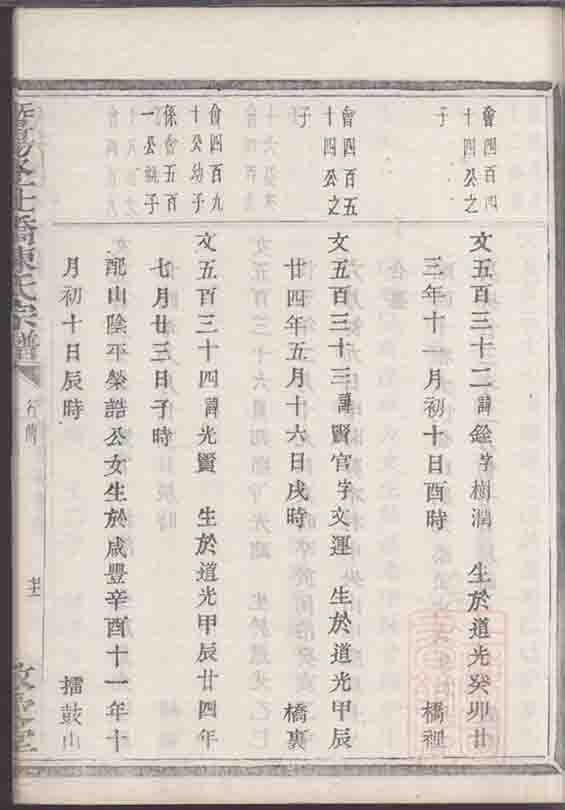 會四百四
十四公之
子
文五百三十二諱銓字樹潤　生於道光癸卯廿
三年十一月初十日酉時　橋裡
會四百五
十四公之
子
文五百三十三諱賢官字文運　生於道光甲辰
廿四年五月十六日戌時　橋裏
會四百九
十公幼子
係會五百
一公繼子
文五百三十四諱光賢　生於道光甲辰廿四年
七月廿三日子時
配山陰平榮誥公女生於咸豐辛酉十一年十
月初十日辰時　擂鼓山
橋陳氏宗譜
行傳